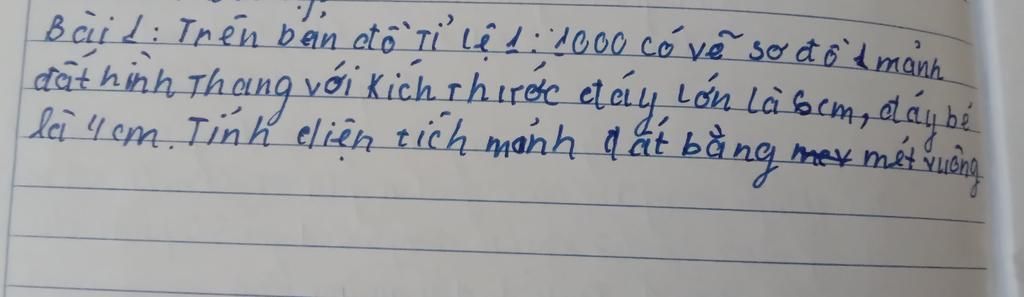 Bài 1: Trên bản đồ Tỉ lệ 1: 1000 có vẽ sơ đồ 1 mảnh
đất hình Thang với Kích Thước đáy Lớn Là 6cm, đáy bé
là 4cm. Tính diện tích mảnh đất bằng mét vuông